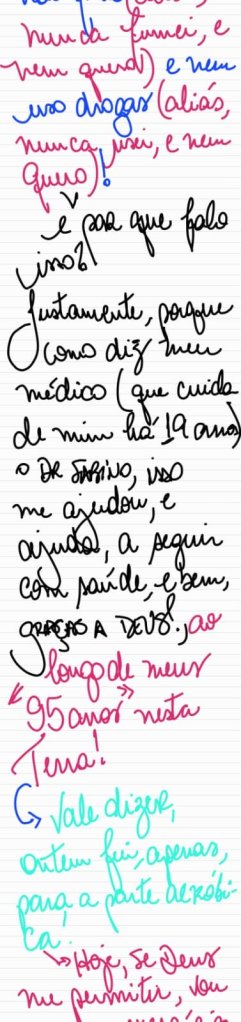 nunca fumei, e
nem quero) e nem
uso drogas (aliás,
nunca usei, e nem
quero)!
e por que falo
isso?
Justamente, porque
como diz meu
médico (que cuida
de mim há 19 anos)
o DR SABINO, isso
me ajudou, e
ajuda, a seguir
com saúde, e bem,
GRAÇAS A DEUS!, ao
longo de meus
"95 anos" nesta
Terra!
Vale dizer,
ontem fui, apenas,
para a parte aeróbi-
ca.
Hoje, se Deus
me permitir, vou